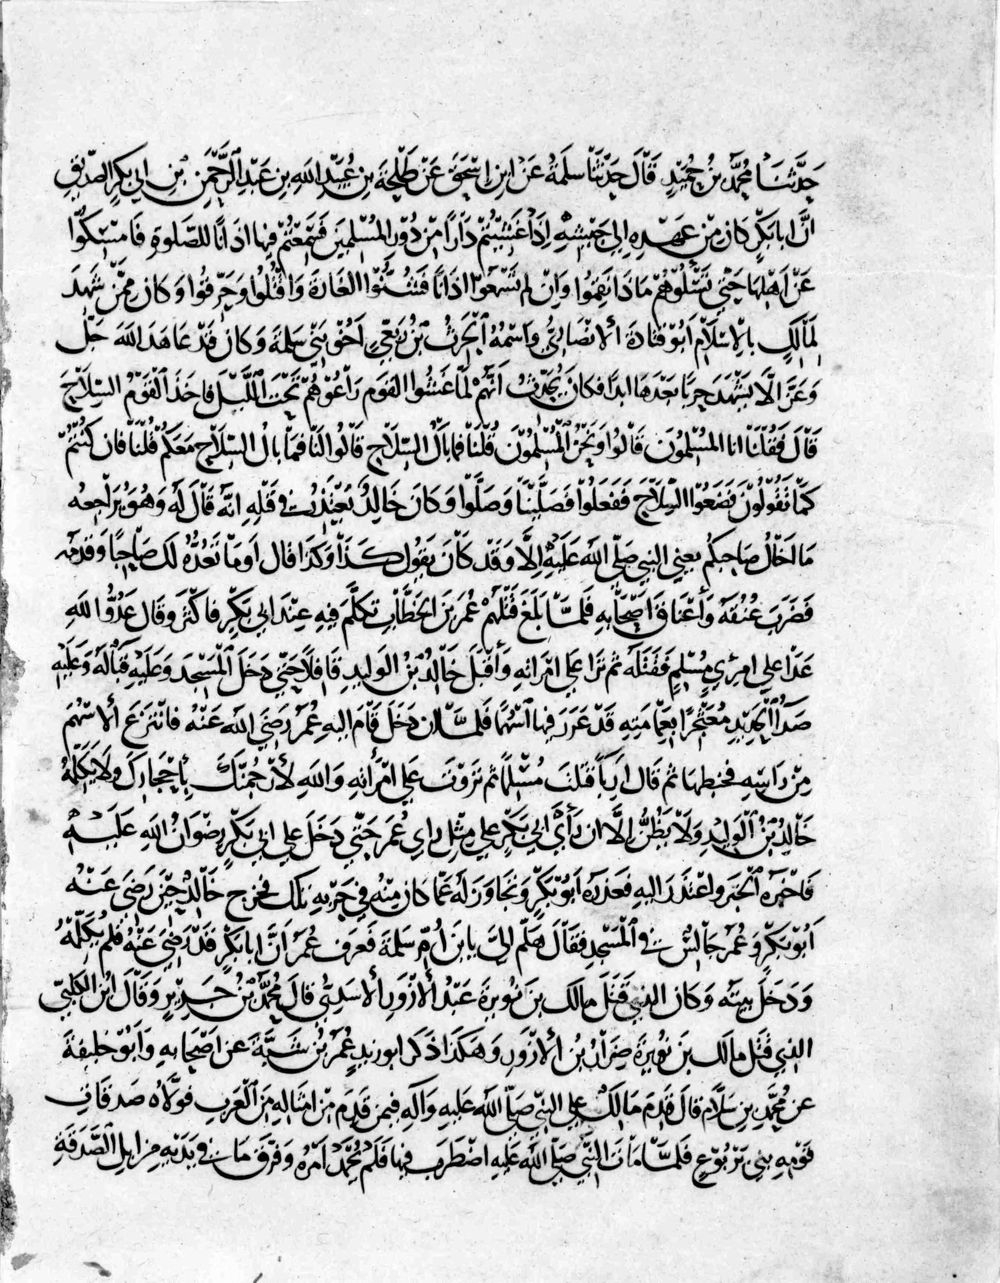 حدثنا محمد بن حميد قال حدثنا سلمة عن ابن اسحق عن طلحة بن عبيد الله بن عبد الرحمن بن ابي بكر الصديق
ان ابا بكر كان من عهده الى جيشه اذا غشيتم دارا من دور المسلمين فسمعتم فيها اذانا للصلوة فامسكوا
عن اهلها حتى تسئلوهم ماذا نقموا وان لم تسمعوا اذانا فشنوا الغارة واقتلوا وحرقوا وكان ممن شهد
لمالك بالاسلام ابو قتادة الانصاري واسمه الحرث بن ربعي اخو بني سلمة وكان قد عاهد الله جل
وعز الا يشهد حربا بعدها ابدا فكان يحدث انهم لما غشوا القوم راعوهم تحت الليل فاخذ القوم السلاح
قال فقلنا انا المسلمون قالوا ونحن المسلمون قلنا فما بال السلاح قالوا لنا فما بال السلاح معكم قلنا فان كنتم
كما تقولون فضعوا السلاح ففعلوا فصلينا وصلوا وكان خالد يعتذر في قتله انه قال له وهو يراجعه
ما اخال صاحبكم يعني النبي صلى الله عليه الا وقد كان يقول كذا وكذا قال او ما تعده لك صاحبا وقدمه
فضرب عنقه واعناق اصحابه فلما بلغ قتلهم عمر بن الخطاب تكلم فيه عند ابي بكر فاكثر وقال عدو الله
عدا على امرئ مسلم فقتله ثم نزا على امراته واقبل خالد بن الوليد قافلا حتى دخل المسجد وعليه قباله وعليه
صدا الحديد معتجرا بعمامته قد غرز فيها اسهما فلما ان دخل قام اليه عمر رضي الله عنه فانتزع الاسهم
من راسه فحطمها ثم قال ارياء قتلت مسلما ثم نزوت على امراته والله لارجمنك باحجارك ولا يكلمه
خالد بن الوليد ولا يظن الا ان راي ابي بكر على مثل راي عمر حتى دخل على ابي بكر رضوان الله عليهم
فاخبره الخبر واعتذر اليه فعذره ابو بكر وتجاوز له عما كان منه في حربه تلك فخرج خالد حين رضي عنه
ابو بكر وعمر جالس في المسجد فقال هلم الي يا بن ام سلمة فعرف عمر ان ابا بكر قد رضي عنه فلم يكلمه
ودخل بيته وكان الذي قتل مالك بن نويرة عبد الازور الاسدي قال محمد بن جرير وقال ابن الكلبي
الذي قتل مالك بن نويرة ضرار بن الازور وهكذا ذكر ابو زيد عمر بن شبة عن اصحابه وابو خليفة
عن محمد بن سلام قال قدم مالك على النبي صلى الله عليه وآله فيمن قدم من امثاله من العرب فولاه صدقات
قومه بني يربوع فلما مات النبي صلى الله عليه اضطرب فيها فلم يحمد امره وفرق ما في يديه من ابل الصدقة